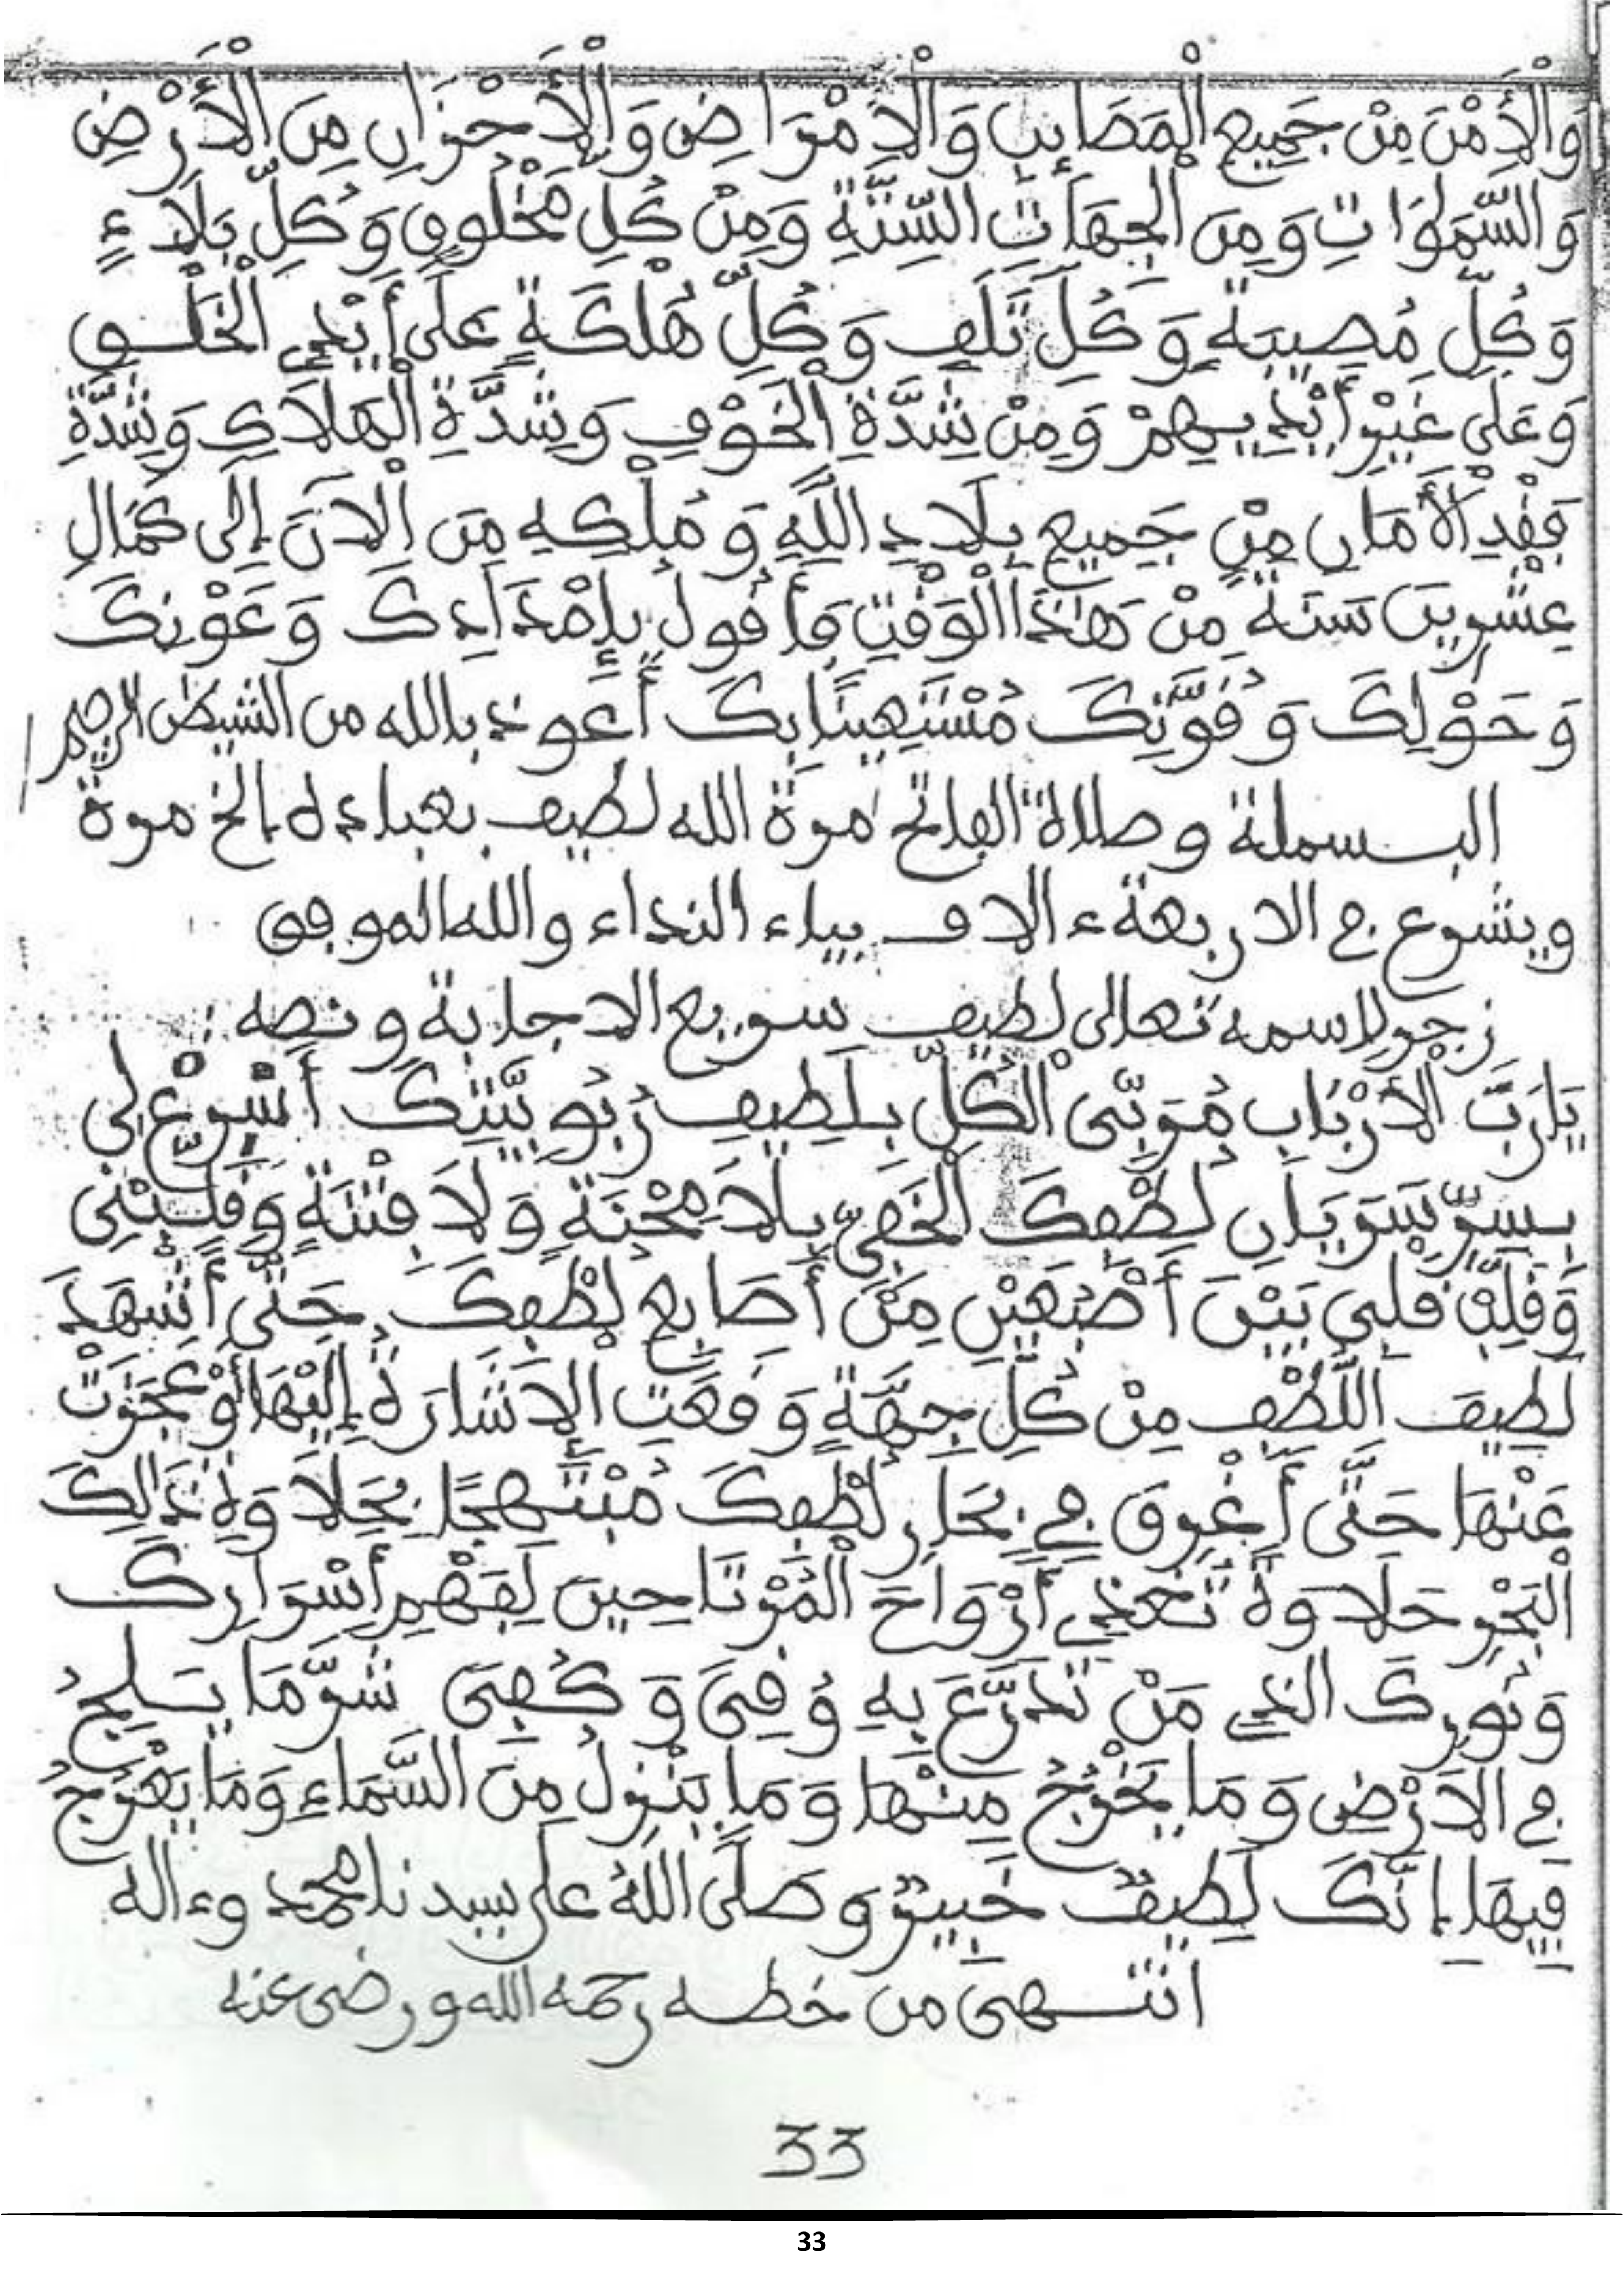 وَالْأَمْنَ مِنْ جَمِيعِ الْمَصَائِبِ وَالْأَمْرَاضِ وَالْأَحْزَانِ مِنَ الْأَرْضِ
وَالسَّمَاوَاتِ وَمِنَ الْجِهَاتِ السِّتَّةِ وَمِنْ كُلِّ مَخْلُوقٍ وَكُلِّ بَلَاءٍ
وَكُلِّ مُصِيبَةٍ وَكُلِّ تَلَفٍ وَكُلِّ هُلْكَةٍ عَلَى أَيْدِي الْخَلْقِ
وَعَلَى غَيْرِ أَيْدِيهِمْ وَمِنْ شِدَّةِ الْخَوْفِ وَشِدَّةِ الْهَلَاكِ وَشِدَّةِ
فَقْدِ الْأَمَانِ مِنْ جَمِيعِ بِلَادِ اللَّهِ وَمُلْكِهِ مِنَ الْآنَ إِلَى كَمَالِ
عِشْرِينَ سَنَةً مِنْ هَٰذَا الْوَقْتِ فَأَقُولُ بِإِمْدَادِكَ وَعَوْنِكَ
وَحَوْلِكَ وَقُوَّتِكَ مُسْتَعِينًا بِكَ أَعوذ بالله من الشيطٰن الرجيم
البسملة وصلاة الفاتح مرة الله لطيف بعباده إلخ مرة
ويشرع في الاربعة ءالاف بياء النداء والله الموفق
زجر لاسمه تعالى لطيف سريع الاجابة ونصه :
يَارَبَّ الْأَرْبَابِ مُرَبِّي الْكُلِّ بِلَطِيفِ رُبُوبِيَّتِكَ أَسْرِعْ لِي
بِسِرِّ سَرَيَانِ لُطْفِكَ الْخَفِيِّ بِلَا مِحْنَةٍ وَلَا فِتْنَةٍ وَقَلِّبْنِي
وَقَلِّبْ قلبي بَيْنَ أَصْبُعَيْنِ مِنْ أَصَابِعِ لُطْفِكَ حَتَّى أَشْهَدَ
لَطِيفَ اللُّطْفِ مِنْ كُلِّ جِهَةٍ وَقَعَتِ الْإِشَارَةُ إِلَيْهَا أَوْ عَجَزَتْ
عَنْهَا حَتَّى أَغْرِقَ فِي بِحَارِ لُطْفِكَ مُبْتَهِجًا بِحَلَاوَةِ ذَالِكَ
الْبَحْرِ حَلَاوَةً تُغَذِّي أَرْوَاحَ الْمُرْتَاحِينَ لِفَهْمِ أَسْرَارِكَ
وَنُورِكَ الذِي مَنْ تَدَرَّعَ بِهِ وُقِيَ وَكُفِيَ شَرَّ مَا يَلِجُ
فِي الْأَرْضِ وَمَا يَخْرُجُ مِنْهَا وَمَا يَنْزِلُ مِنَ السَّمَاءِ وَمَا يَعْرُجُ
فِيهَا إِنَّكَ لَطِيفٌ خَبِيرٌ وَصَلَّى اللَّهُ على سيدنا محمد وءاله
انتهى من خطه رحمه الله ورضي عنه
33
33